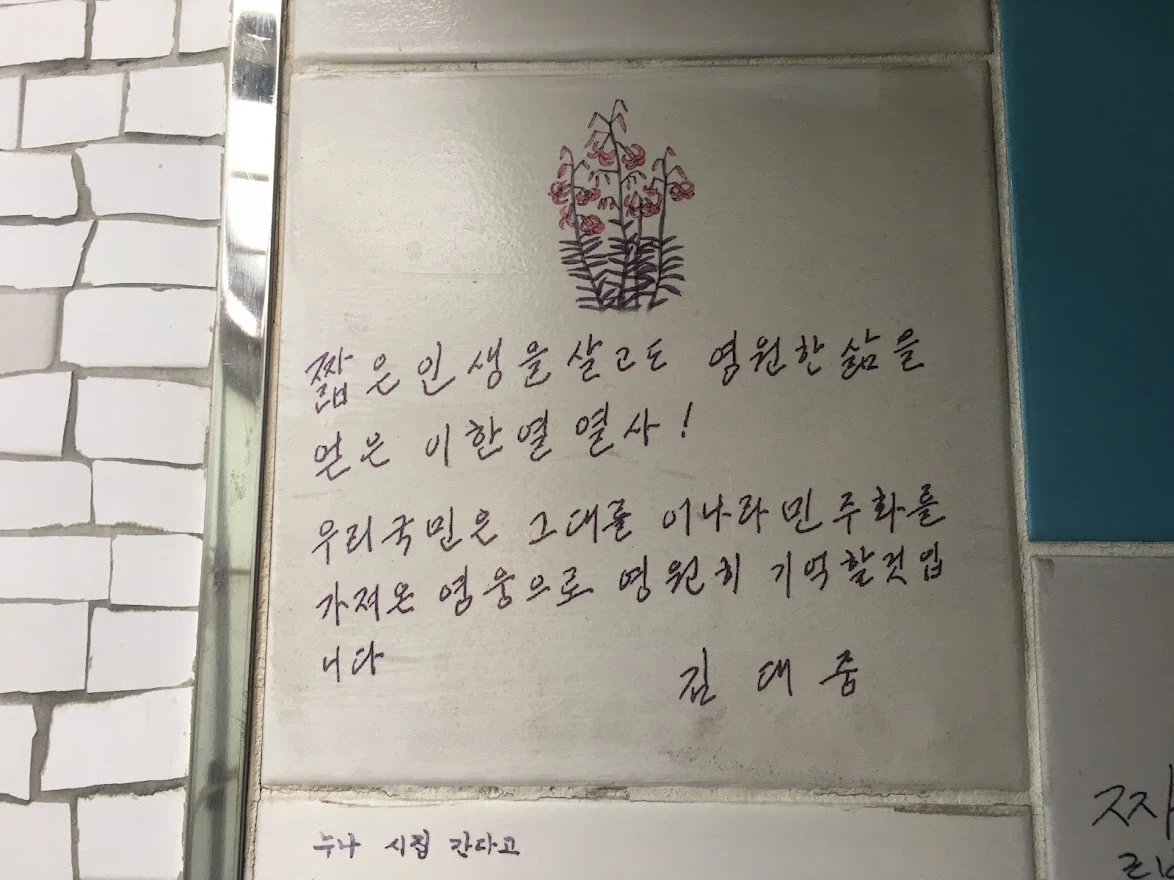 짧은 인생을 살고도 영원한 삶을
얻은 이한열 열사!
우리국민은 그대를 이나라 민주화를
가져온 영웅으로 영원히 기억할것입
니다
김대중
누나 시집 간다고